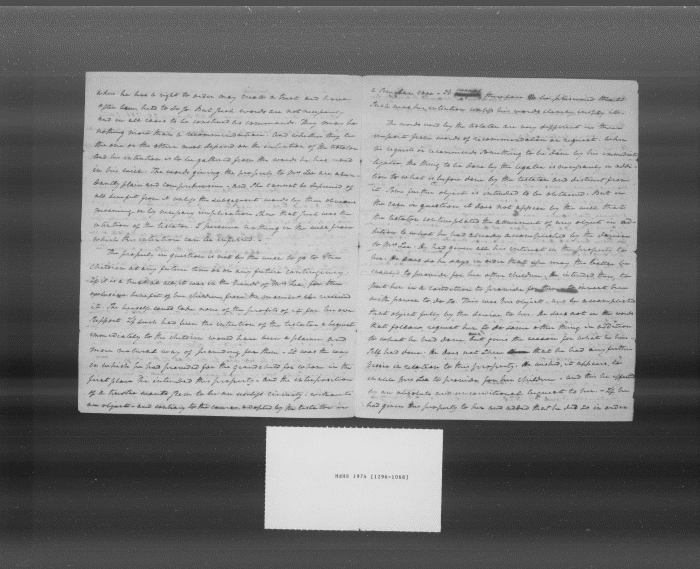 when he has a right to order may create a trust and have
often been held to do so. But such words are not necessarily
and in all cases to be construed as commands. They may be
nothing more than a recommendation. And whether they be
the one or the other must depend on the intention of the testator
And his intention is to be gathered from the words he has used
in his will. The words giving the property to Mrs Lee are abun-
dantly plain and comprehensive, and she cannot be deprived of
all benefit from it unless the subsequent words by their obvious
meaning or by necessary implication show that such was the
intention of the testator. I perceive nothing in the will from
which this intention can be inferred.
The property in question is not by the will to go to the
children at any future time or on any future contingency.
If it is a trust at all it was in the hands of Mrs Lee, for the
exclusive benefit of her children from the moment she received
it. She herself could take none of the profits of it for her own
support. If such had been the intention of the testator a bequest
immediately to the children would have been a plainer and
more natural way of providing for them. It was the way
in which he had provided for the grandchild for whom in the
first place he intended this property. And the interposition
of a trustee would seem to be an useless circuity, without
an object, and contrary to the course adopted by the testator in
a similar case. It therefore
such was his intention unless his words clearly imply it.
The words used by the testator are very different in their
import from words of recommendation or request. When
he requests or recommends something to be done by his immediate
legatee the thing to be done by the legatee is everywhere in addi-
tion to what is before done by the testator and distinct from
it. Some further object is intended to be obtained. But in
the case in question it does not appear by the will that
the testator contemplated the attainment of any object in ad-
dition to what he had already accomplished by the devise
to Mrs Lee. He had given all his interest in the property to
her. He does so he says in order that she may the better be
enabled to provide for her other children. He intended then to
put her in a condition to provide for invest her
with power to do so. This was his object. And he accomplished
that object fully by the devise to her. He does not in the words
that follow request her to do some other thing in addition
to what he had done but gives the reason for what he him-
self had done. He does not show that he had any further
desire in relation to this property. He wished, it appears, to
enable Mrs Lee to provide for her children. And this he effected
by an absolute and unconditional bequest to her. If he
had given this property to her and added that he did it in order
MdHR 1974 [1296-1068]